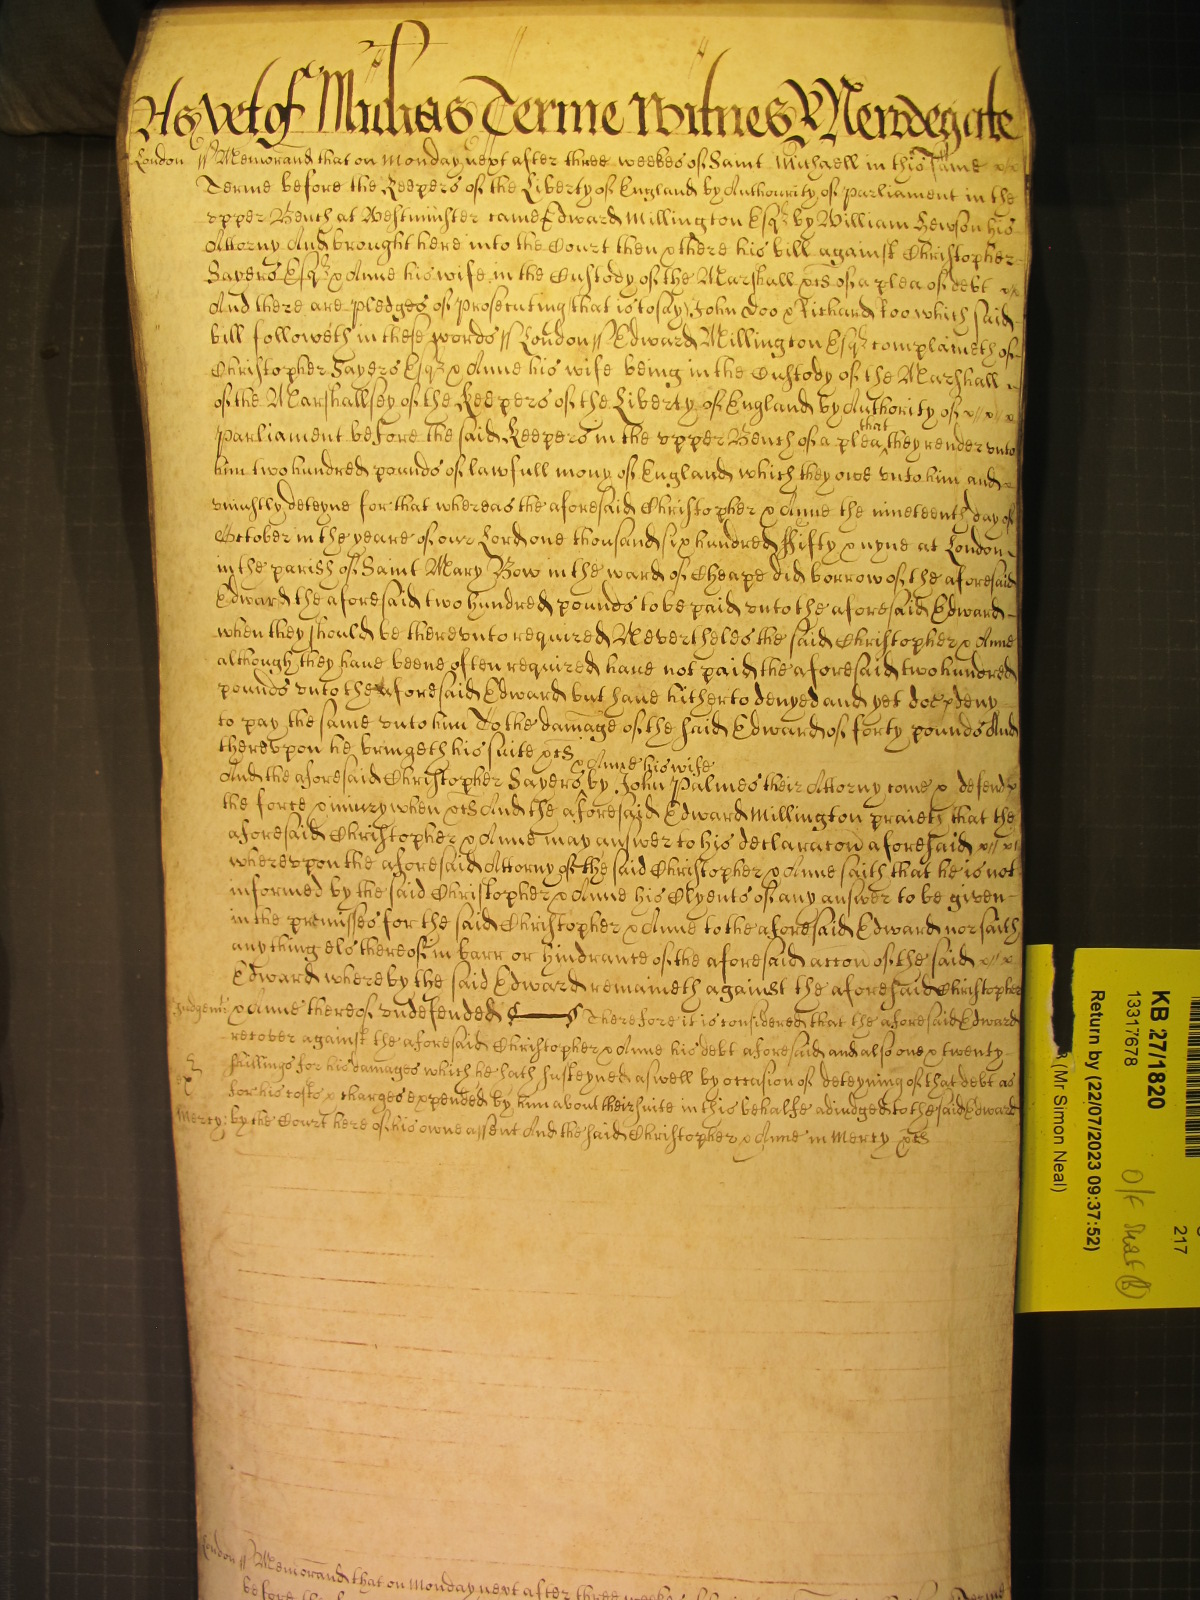 As yet of Michas Terme Witnes Newdegate
London // Memorand that on Monday next after three weekes of Saint Michaell in this same
Terme before the Keepers of the Liberty of England by Authourity of Parliament in the
vpper Bench at Westminster came Edward Millington Esqr by William Hewson his
Attorny And brought here into the Court then & there his bill against Christopher
Sayers Esqr & Anne his wife in the Custody of the Marshall &cs of a plea of debt
And there are pledges of prosecuting (that is to say) John Doo & Richard Roo which said
bill followeth in these words // London // Edward Millington Esqr complaineth of
Christopher Sayers Esqr & Anne his wife being in the Custody of the Marshall
of the Marshallsey of the Keepers of the Liberty of England by Authority of
Parliament before the said Keepers in the vpper Bench of a plea that they render vnto
him two hundred pounds of lawfull mony of England which they owe vnto him and
vniustly deteyne for that whereas the aforesaid Christopher & Anne the nineteenth day of
October in the yeare of our Lord one thousand six hundred ffifty & nyne at London
in the parish of Saint Mary Bow in the ward of Cheape did borrow of the aforesaid
Edward the aforesaid two hundred pounds to be paid vnto the aforesaid Edward
when they should be therevnto required Neverthelės the said Christopher & Anne
although they haue beene often required haue not paid the aforesaid two hundred
pounds vnto the aforesaid Edward but haue hitherto denyed and yet doe deny
to pay the same vnto him To the damage of the said Edward of forty pounds And
therevpon he bringeth his suite &cs
And the aforesaid Christopher Sayers & Anne his wife by John Palmes their Attorny come & defend
the force & iniury when &cs And the aforesaid Edward Millington praieth that the
aforesaid Christopher & Anne may answer to his declaracon aforesaid
wherevpon the aforesaid Attorny of the said Christopher & Anne saith that he is not
informed by the said Christopher & Anne his Clyents of any answer to be given
in the premisses for the said Christopher & Anne to the aforesaid Edward nor saith
any thing els thereof in barr or hindrance of the aforesaid accon of the said
Edward whereby the said Edward remaineth against the aforesaid Christopher
Judgemt & Anne thereof vndefended Therefore it is considered that the aforesaid Edward
recover against the aforesaid Christopher & Anne his debt aforesaid and also one & twenty
shillings for his damages which he hath susteyned aswell by occasion of deteyning of that debt as
for his costs & charges expended by him about their suite in this behalfe adiudged to the said Edward
Mercy: by the Court here of his owne assent And the said Christopher & Anne in Mercy &cs
London // Memorand that on Monday next after three weekes
before the
KB 27/1820
13317678
Return by (22/07/2023 09:37:52)
(Mr Simon Neal)
217